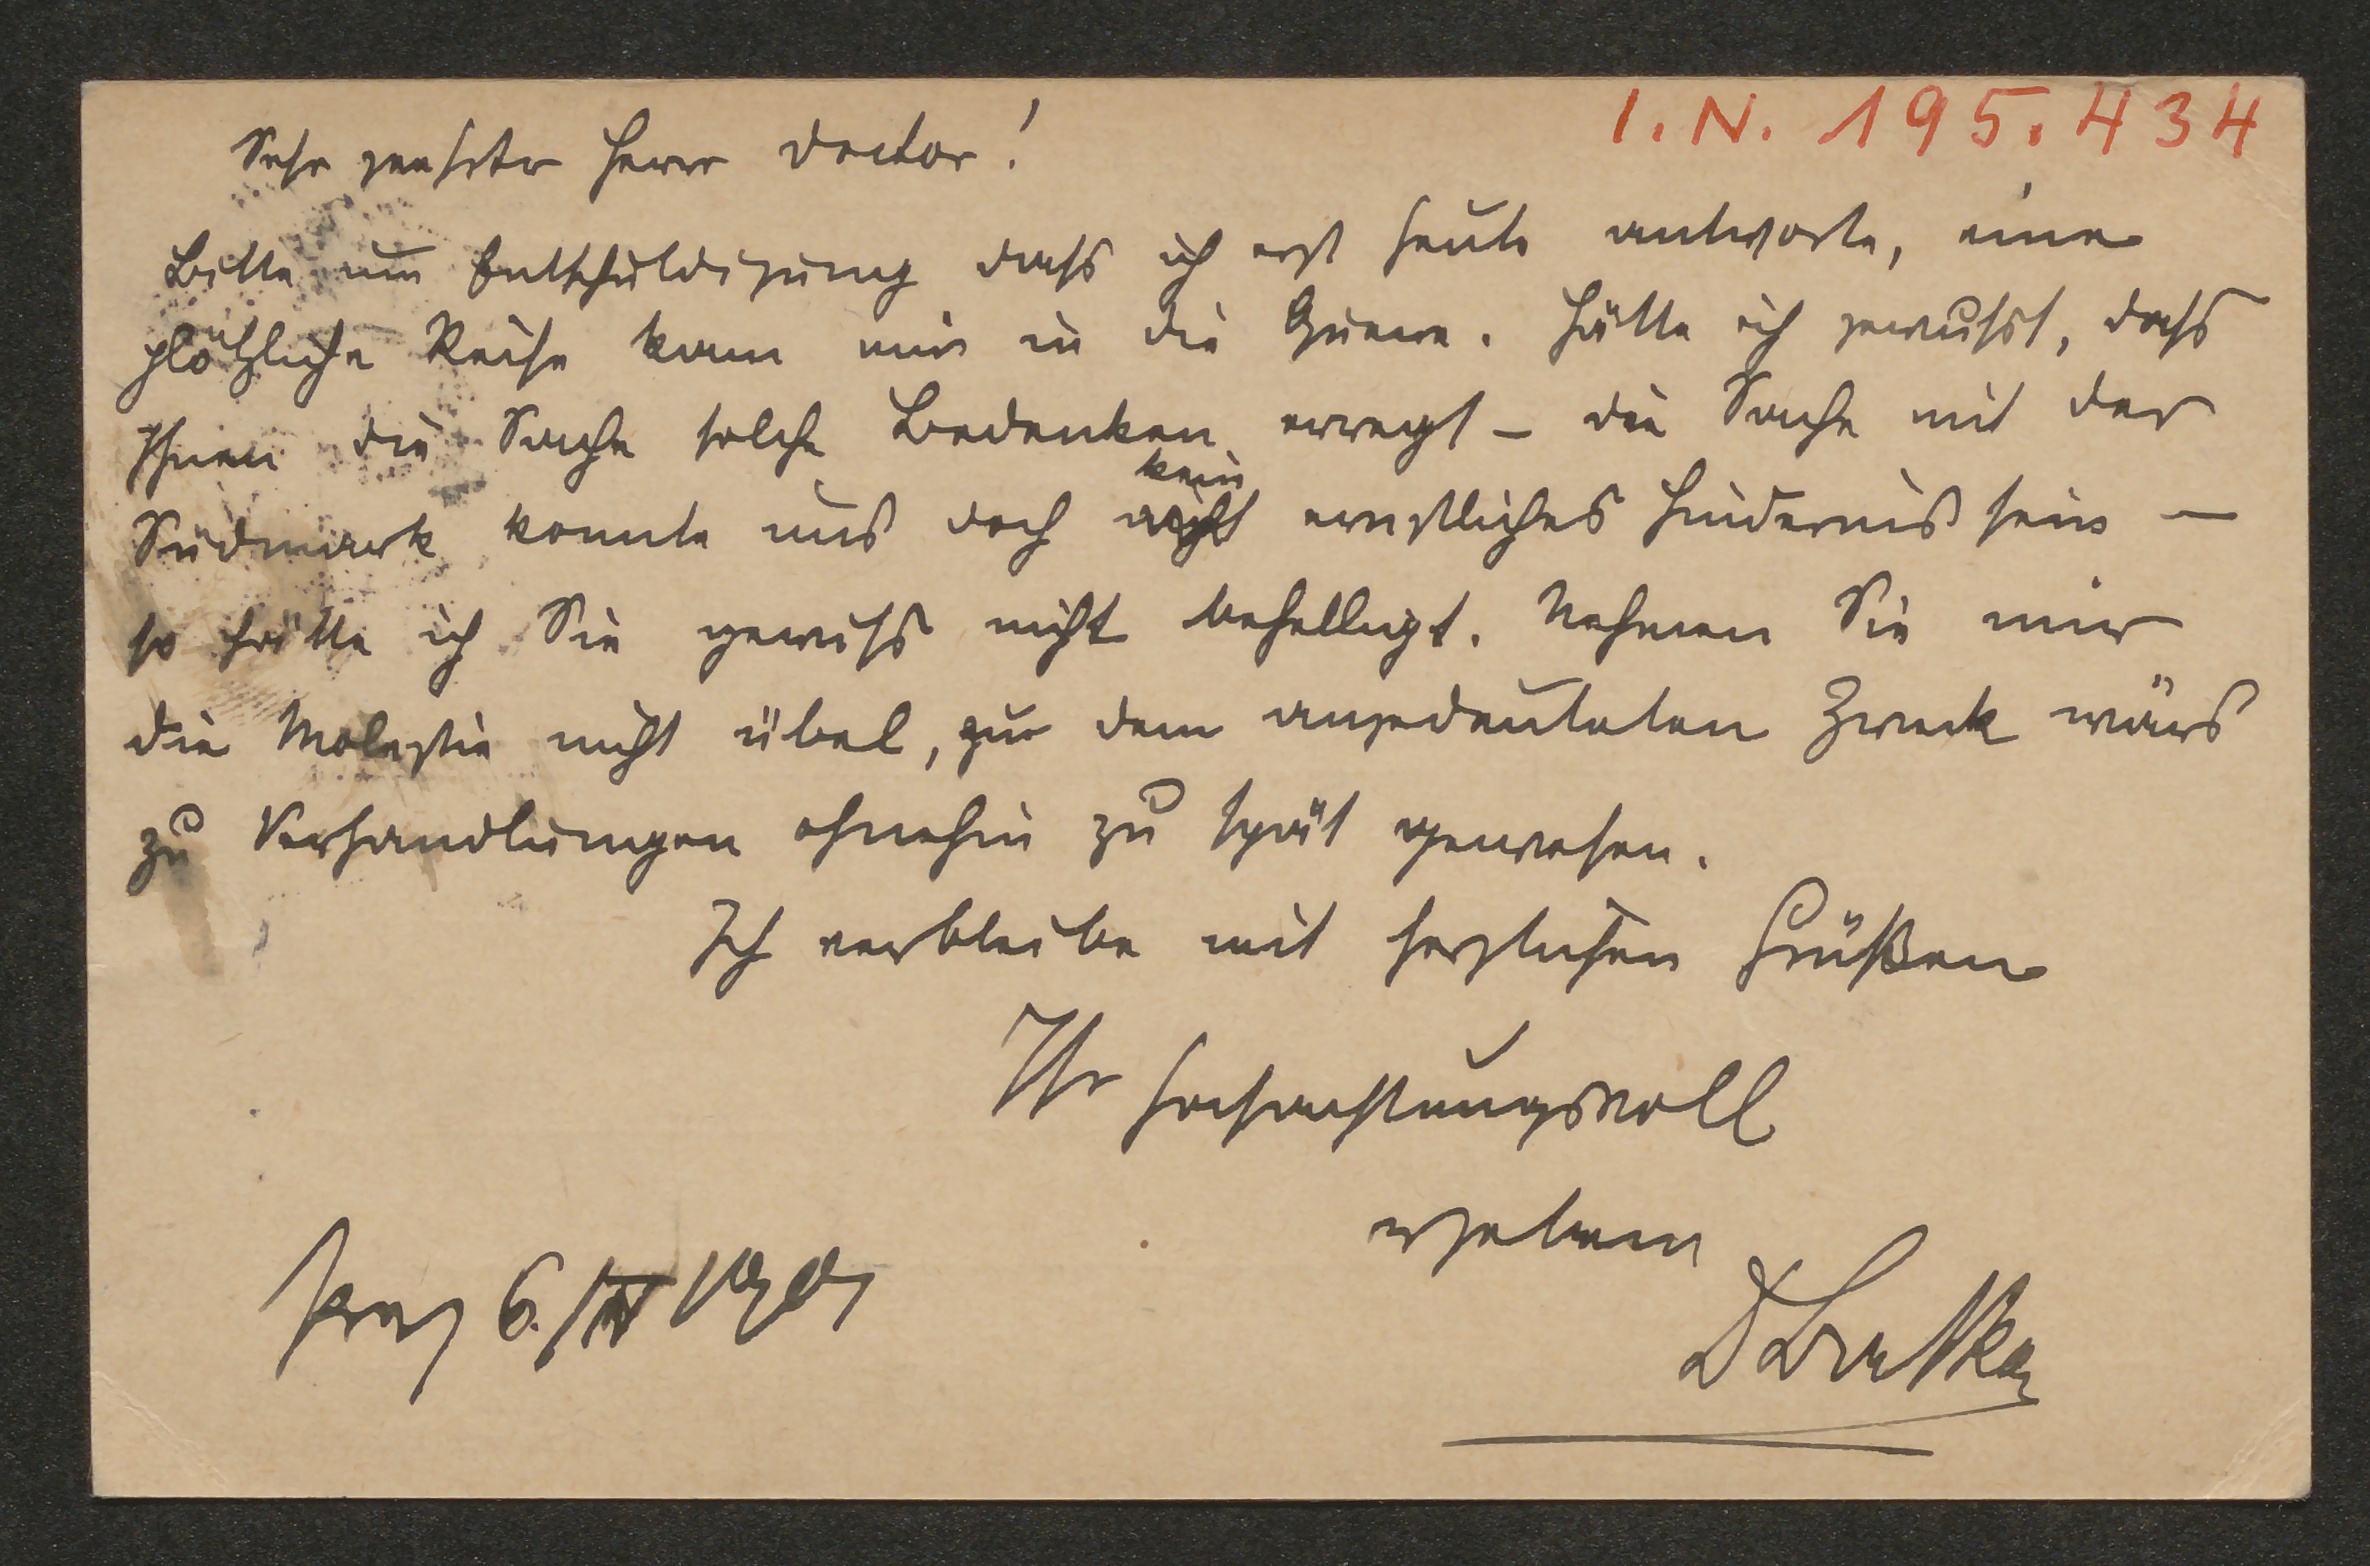 I. N. 195.434
Sehr geehrter Herr Doctor!
Bitte um Entschuldigung dass ich erst heute antworte, eine
plötzliche Reise kam mir in die Quere. Hätte ich gewusst, dass
Ihnen die Sache solche Bedenken erregt – die Sache mit der
kein
Südmark konnte uns doch nicht ernstliches Hindernis sein –
so hätte ich Sie gewiss nicht behelligt. Nehmen Sie mir
die Molestie nicht übel, zur dem angedeuteten Zweck wärs
zu Verhandlungen ohnehin zu spät gewesen.
Ich verbleibe mit herzlichen Grüßen
Ihr hochachtungsvoll
ergebener
Prag 6./IV 1901